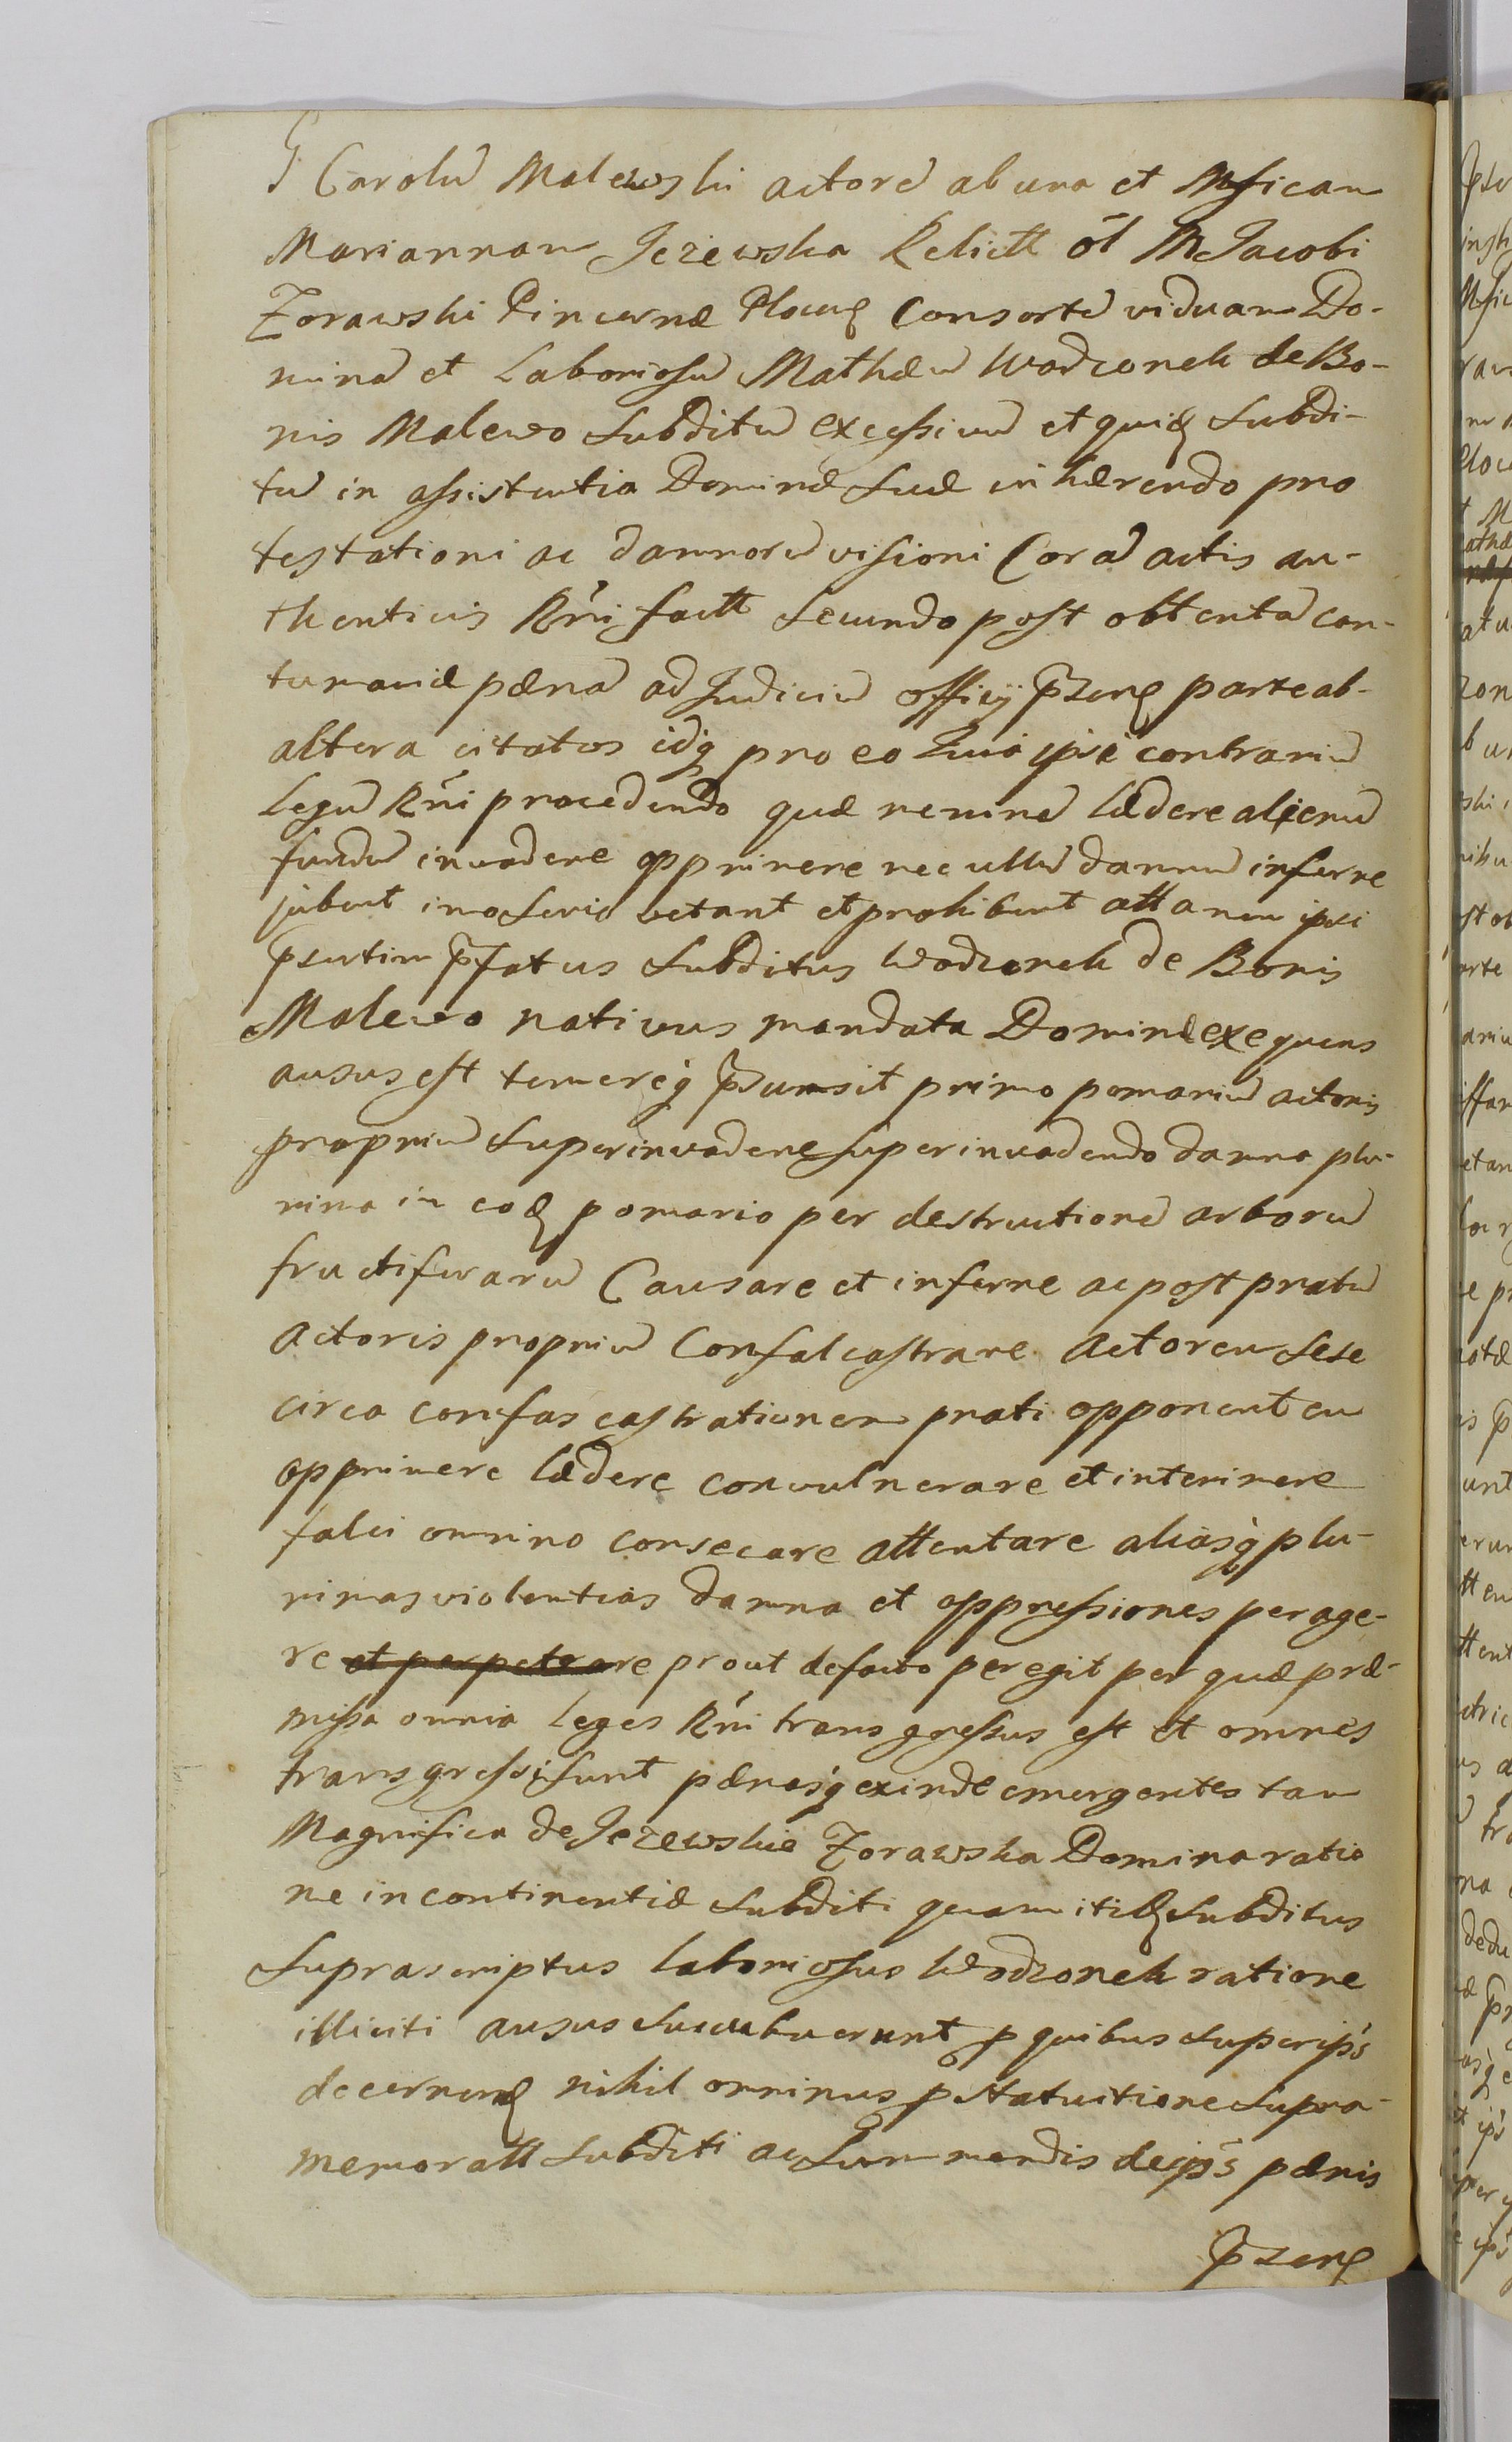 G Carolũ Malewski actorẽ ab una et Mficam
Mariannam Jeżewska Relictt ol M Jacobi
Żorawski Pincernæ Plocen Consortẽ viduam Do-
minã et Laboriosũ Mathæũ Wodzonek de Bo-
nis Malewo Subditũ excessivũ et quidem Subdi-
tũ in assistentia Dominæ Suæ inhærendo pro
testationi ac damnorũ visioni Corã actis au-
thenticis Rni factt Secundo post obttentã con-
tumaciæ pænã ad Judiciũ officij p̃sens parte ab-
altera citatos idq pro eo Quia ipsi contrariũ
Legũ Rni procedendo quæ neminẽ lædere alienũ
fundũ invadere opprimere nec ullũ damnũ inferre
jubent imo Serio vetant et prohibent attamen ipsi
p̃sertim p̃fatus Subditus Wodzonek de Bonis
Malewo nativus mandata Dominæ exequens
ausus est temereq p̃sumsit primo pomariũ actoris
propriũ Superinvadere Superinvadendo damna plu-
rima in eod pomario per destructionẽ arborũ
fructiferarũ Causare et inferre ac post pratũ
Actoris propriũ Confalcastrare Actorem Sese
circa confascastrationem prati opponentem
opprimere lædere convulnerare et interimere
falci omnino consecare attentare aliasq plu-
rimas violentias damna et oppressiones perage-
re et perpetrare prout defacto peregit per quæ præ-
missa omnia Leges Rni transgressus est et omnes
transgressi Sunt pænasq exinde emergentes tam
Magnifica de Jezewskie Żorawska Domina ratio
ne incontinentiæ Subditi quam itid Subditus
Suprascriptus laboriosus Wodzonek ratione
illiciti ausus Succubuerunt p quibus Super ip̃s
decernend nihil ominus p Statuitione Supra-
memoratt Subditi ac Summendis de ip̃s pænis
p̃sens